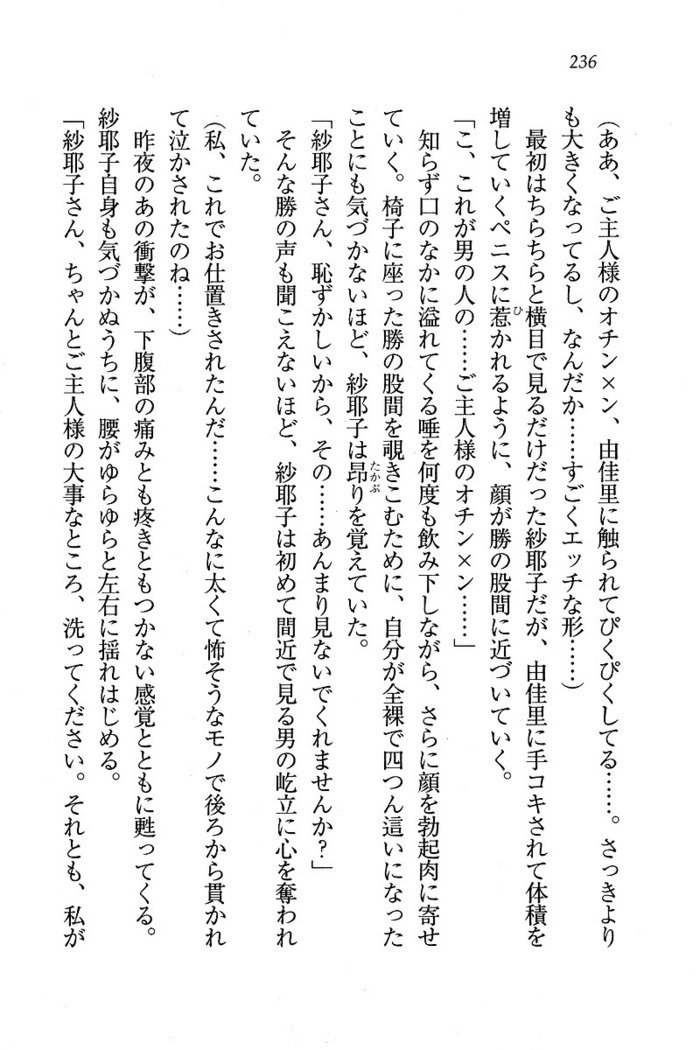 236
(ああ、ご主人様のオチン×ン、由佳里に触られてぴくぴくしてる……。さっきより
も大きくなってるし、なんだか……すごくエッチな形……)
最初はちらちらと横目で見るだけだった紗耶子だが、由佳里に手コキされて体積を
増していくペニスに惹かれるように、顔が勝の股間に近づいていく。
「こ、これが男の人の……ご主人様のオチン×ン……」
知らず口のなかに溢れてくる唾を何度も飲み下しながら、さらに顔を勃起肉に寄せ
ていく。椅子に座った勝の股間を覗きこむために、自分が全裸で四つん這いになった
ことにも気づかないほど、紗耶子は昂りを覚えていた。
「紗耶子さん、恥ずかしいから、その……あんまり見ないでくれませんか?」
そんな勝の声も聞こえないほど、紗耶子は初めて間近で見る男の屹立に心を奪われ
ていた。
(私、これでお仕置きされたんだ……こんなに太くて怖そうなモノで後ろから貫かれ
て泣かされたのね……)
昨夜のあの衝撃が、下腹部の痛みとも疼きともつかない感覚とともに甦ってくる。
紗耶子自身も気づかぬうちに、腰がゆらゆらと左右に揺れはじめる。
「紗耶子さん、ちゃんとご主人様の大事なところ、洗ってください。それとも、私が